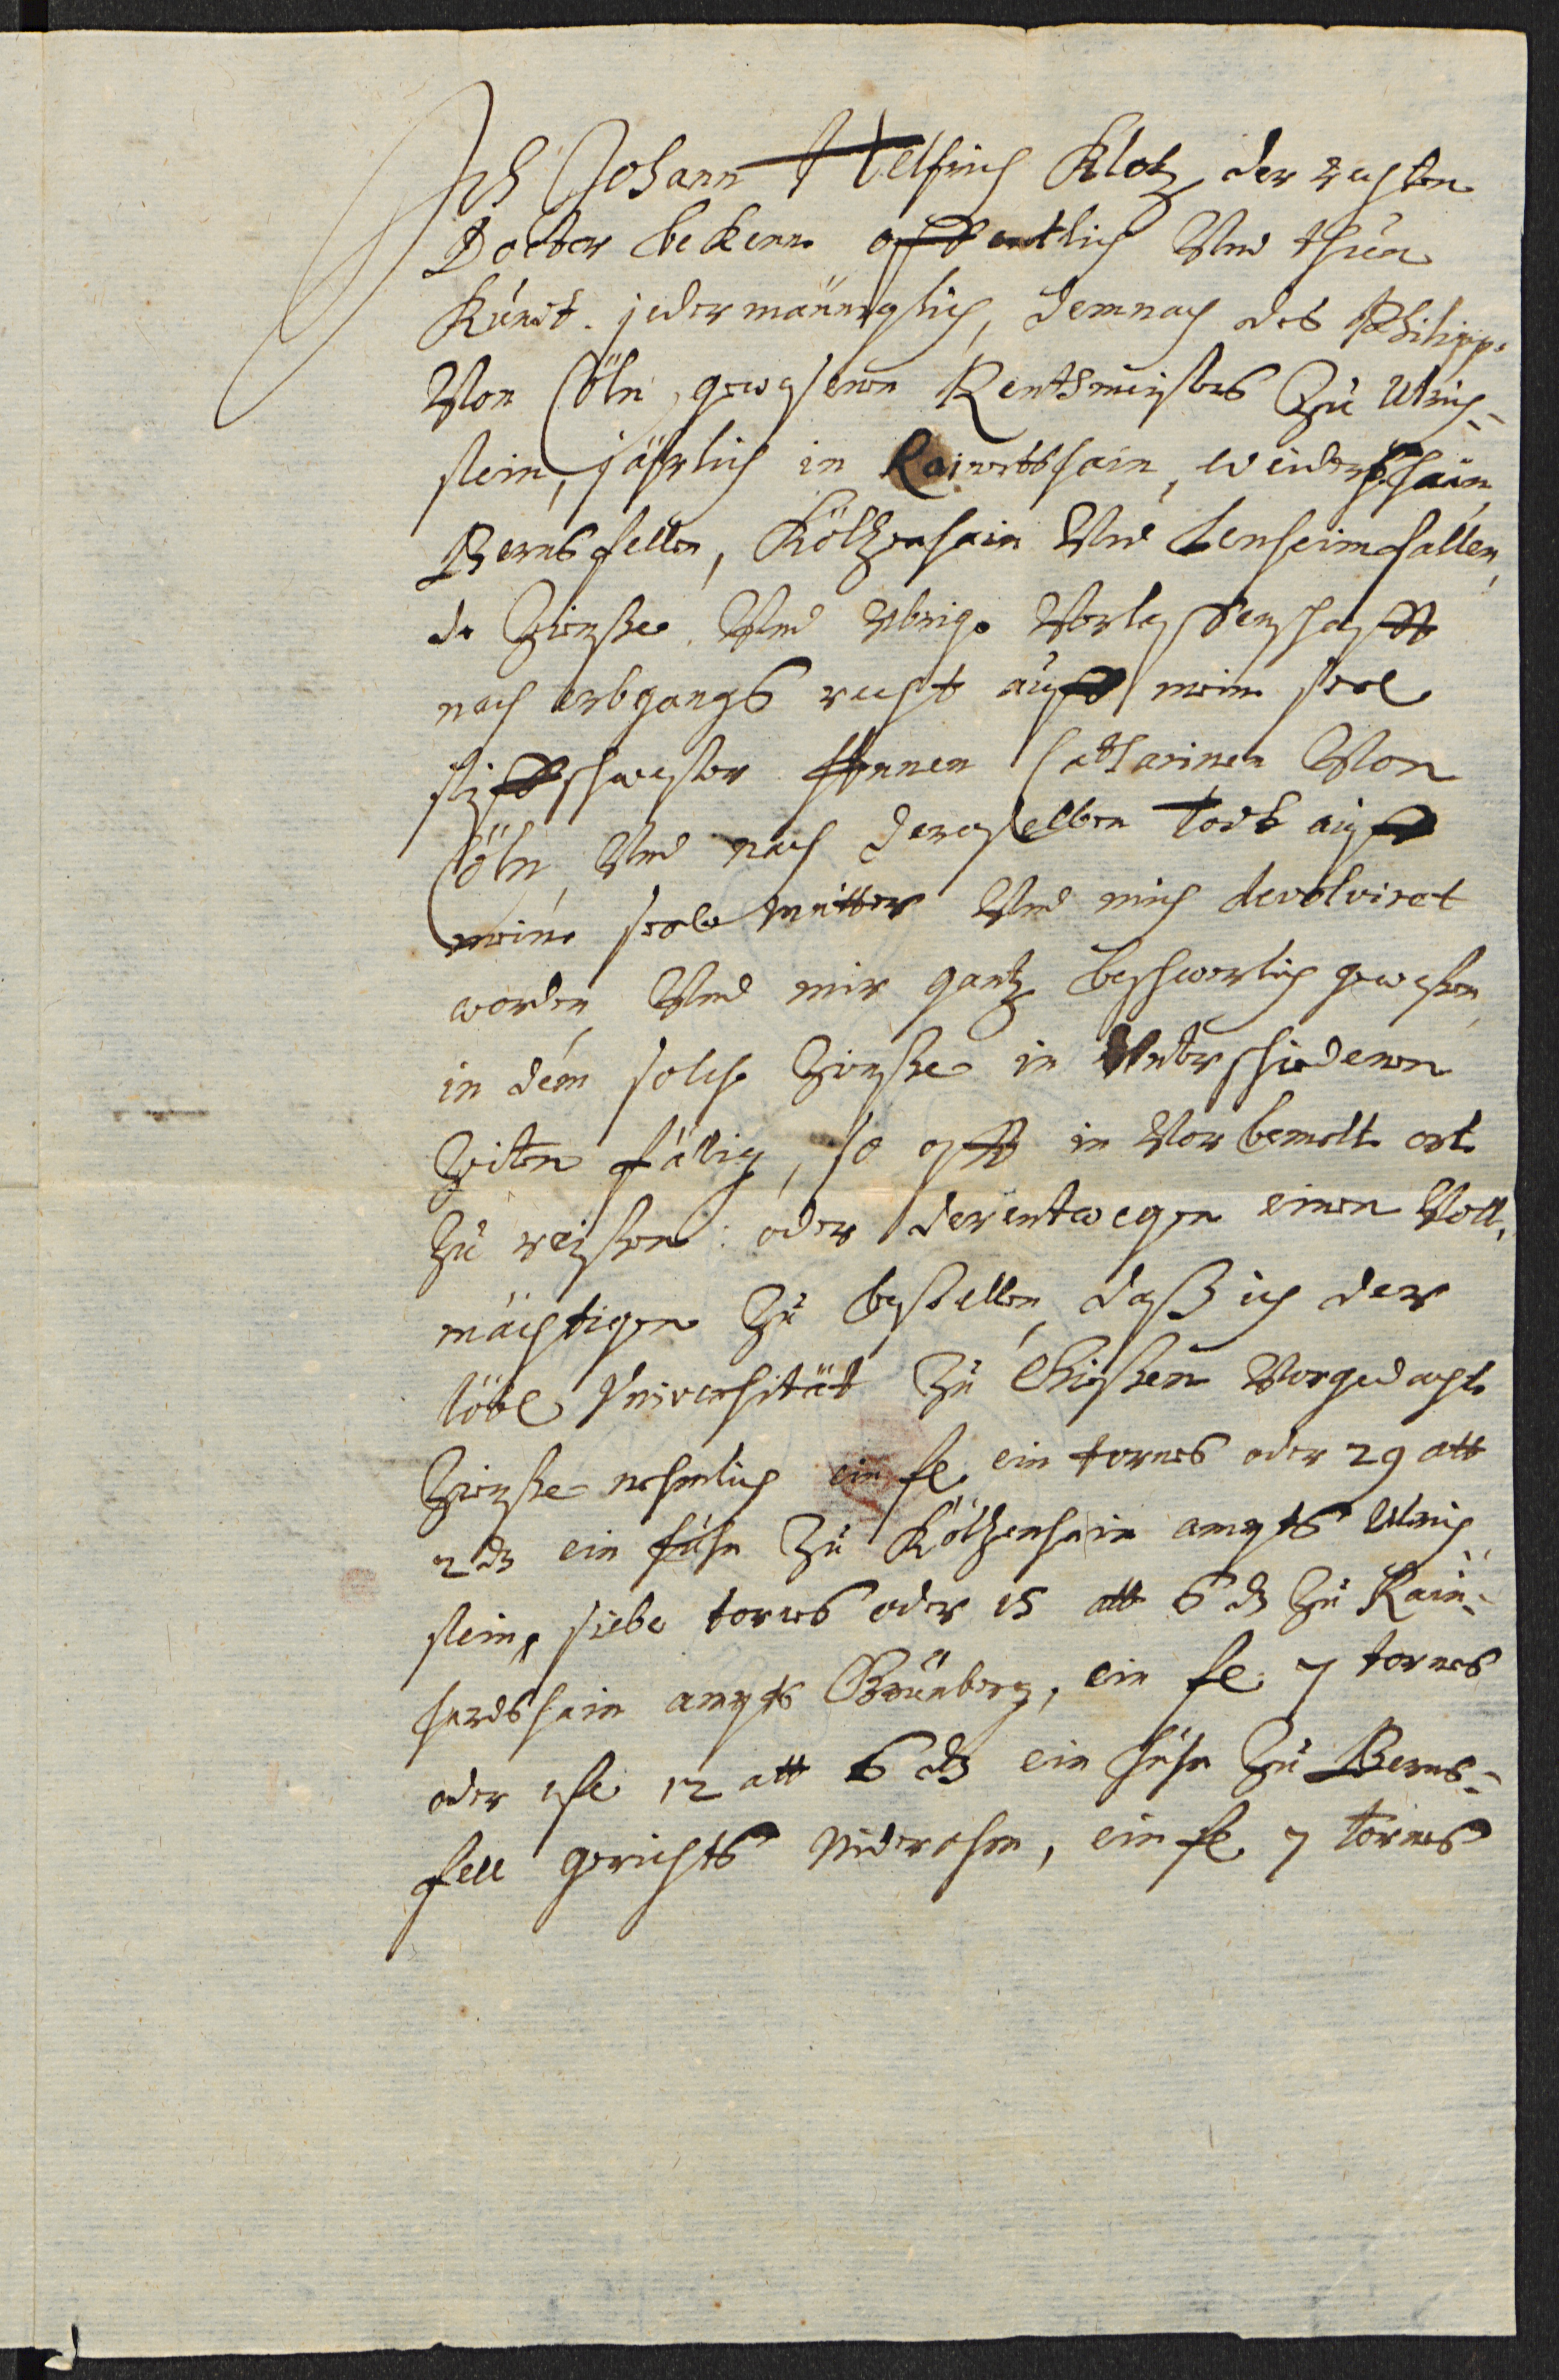 Ich Johann Helfrich Klotz der rechten
Doctor bekenn offentlich Vnd thue
Kundt. jedermänniglich, demnach des Philipps
Von Cöln, gewesenen Rentmeisters zu Ulrich-
stein, jährlich in Rainertshain, weidershain,
Bernsfellen, Költzenhain Vnd Lenheim fallen,
de Zinsse Vnd vbrige Verlassenschafft
nach erbgangs recht auff meine seel
stiffschwester Annen Catharinen Von
Cöln, Vnd nach deroselben Todt auff
meine seele mutter Vnd mich devolviret
worden Vnd mir gantz beschwerlich gewesen,
in dem solche Zinsse in Vnterschiedenen
Zeiten fällig, so offt in Vorbemelte ort
zu reissen oder derentwegen einen Voll,
mächtigen zu bestellen, dass ich der
löbl Vniversität zu Giessen Vorgedachte
Zinsse nehmlich ein fl ein tornes oder 29 alb
2 d ein huhn zu Költzenhain ampts Ulrich
stein, siebe tornes oder 15 alb 6 d zu Rain-
hardshain ampts Grünberg, ein fl. 7 tornes
oder 1 fl 12 alb 6 d ein huhn zu Berns-
fell gerichts Niderohm, ein fl 7 tornes